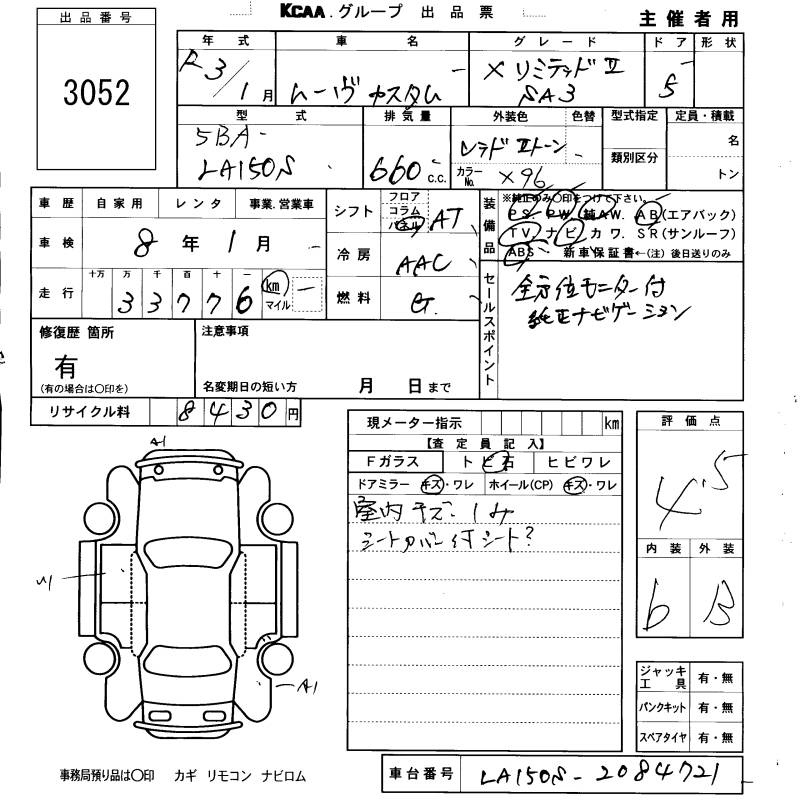 KCAA.グループ 出品票
主催者用
出品番号
3052
年式 車名 グレード ドア 形状
R3/1月 ムーヴ カスタム X リミテッドⅡ SA3 5
型式 排気量 外装色 色替 型式指定 定員・積載
5BA-
LA150S 660 c.c. レッドⅡトーン 名
カラーNo. X96 類別区分 トン
車歴 自家用 レンタ 事業.営業車
車検 8年1月
走行 十万 万 千 百 十 一
33776 km マイル
シフト フロア コラム パネル AT
冷房 AAC
燃料 G.
装備品 ※純正のみ〇印をつけて下さい。
PS. PW. 純AW. AB(エアバック)
TV. ナビ. カワ. SR(サンルーフ)
ABS. 新車保証書←(注)後日送りのみ
セールスポイント
全方位モニター付
純正ナビゲーション
修復歴 箇所 注意事項
有
(有の場合は〇印を) 名変期日の短い方 月 日まで
リサイクル料 8430円
現メーター指示 km
【査定員記入】
Fガラス トビ石 ヒビワレ
ドアミラー キズ・ワレ ホイール(CP) キズ・ワレ
室内キズ・シミ
シートカバー付シート?
評価点
4.5
内装 外装
b B
A1
A1
ジャッキ工具 有・無
パンクキット 有・無
スペアタイヤ 有・無
事務局預り品は〇印 カギ リモコン ナビロム
車台番号 LA150S-2084721